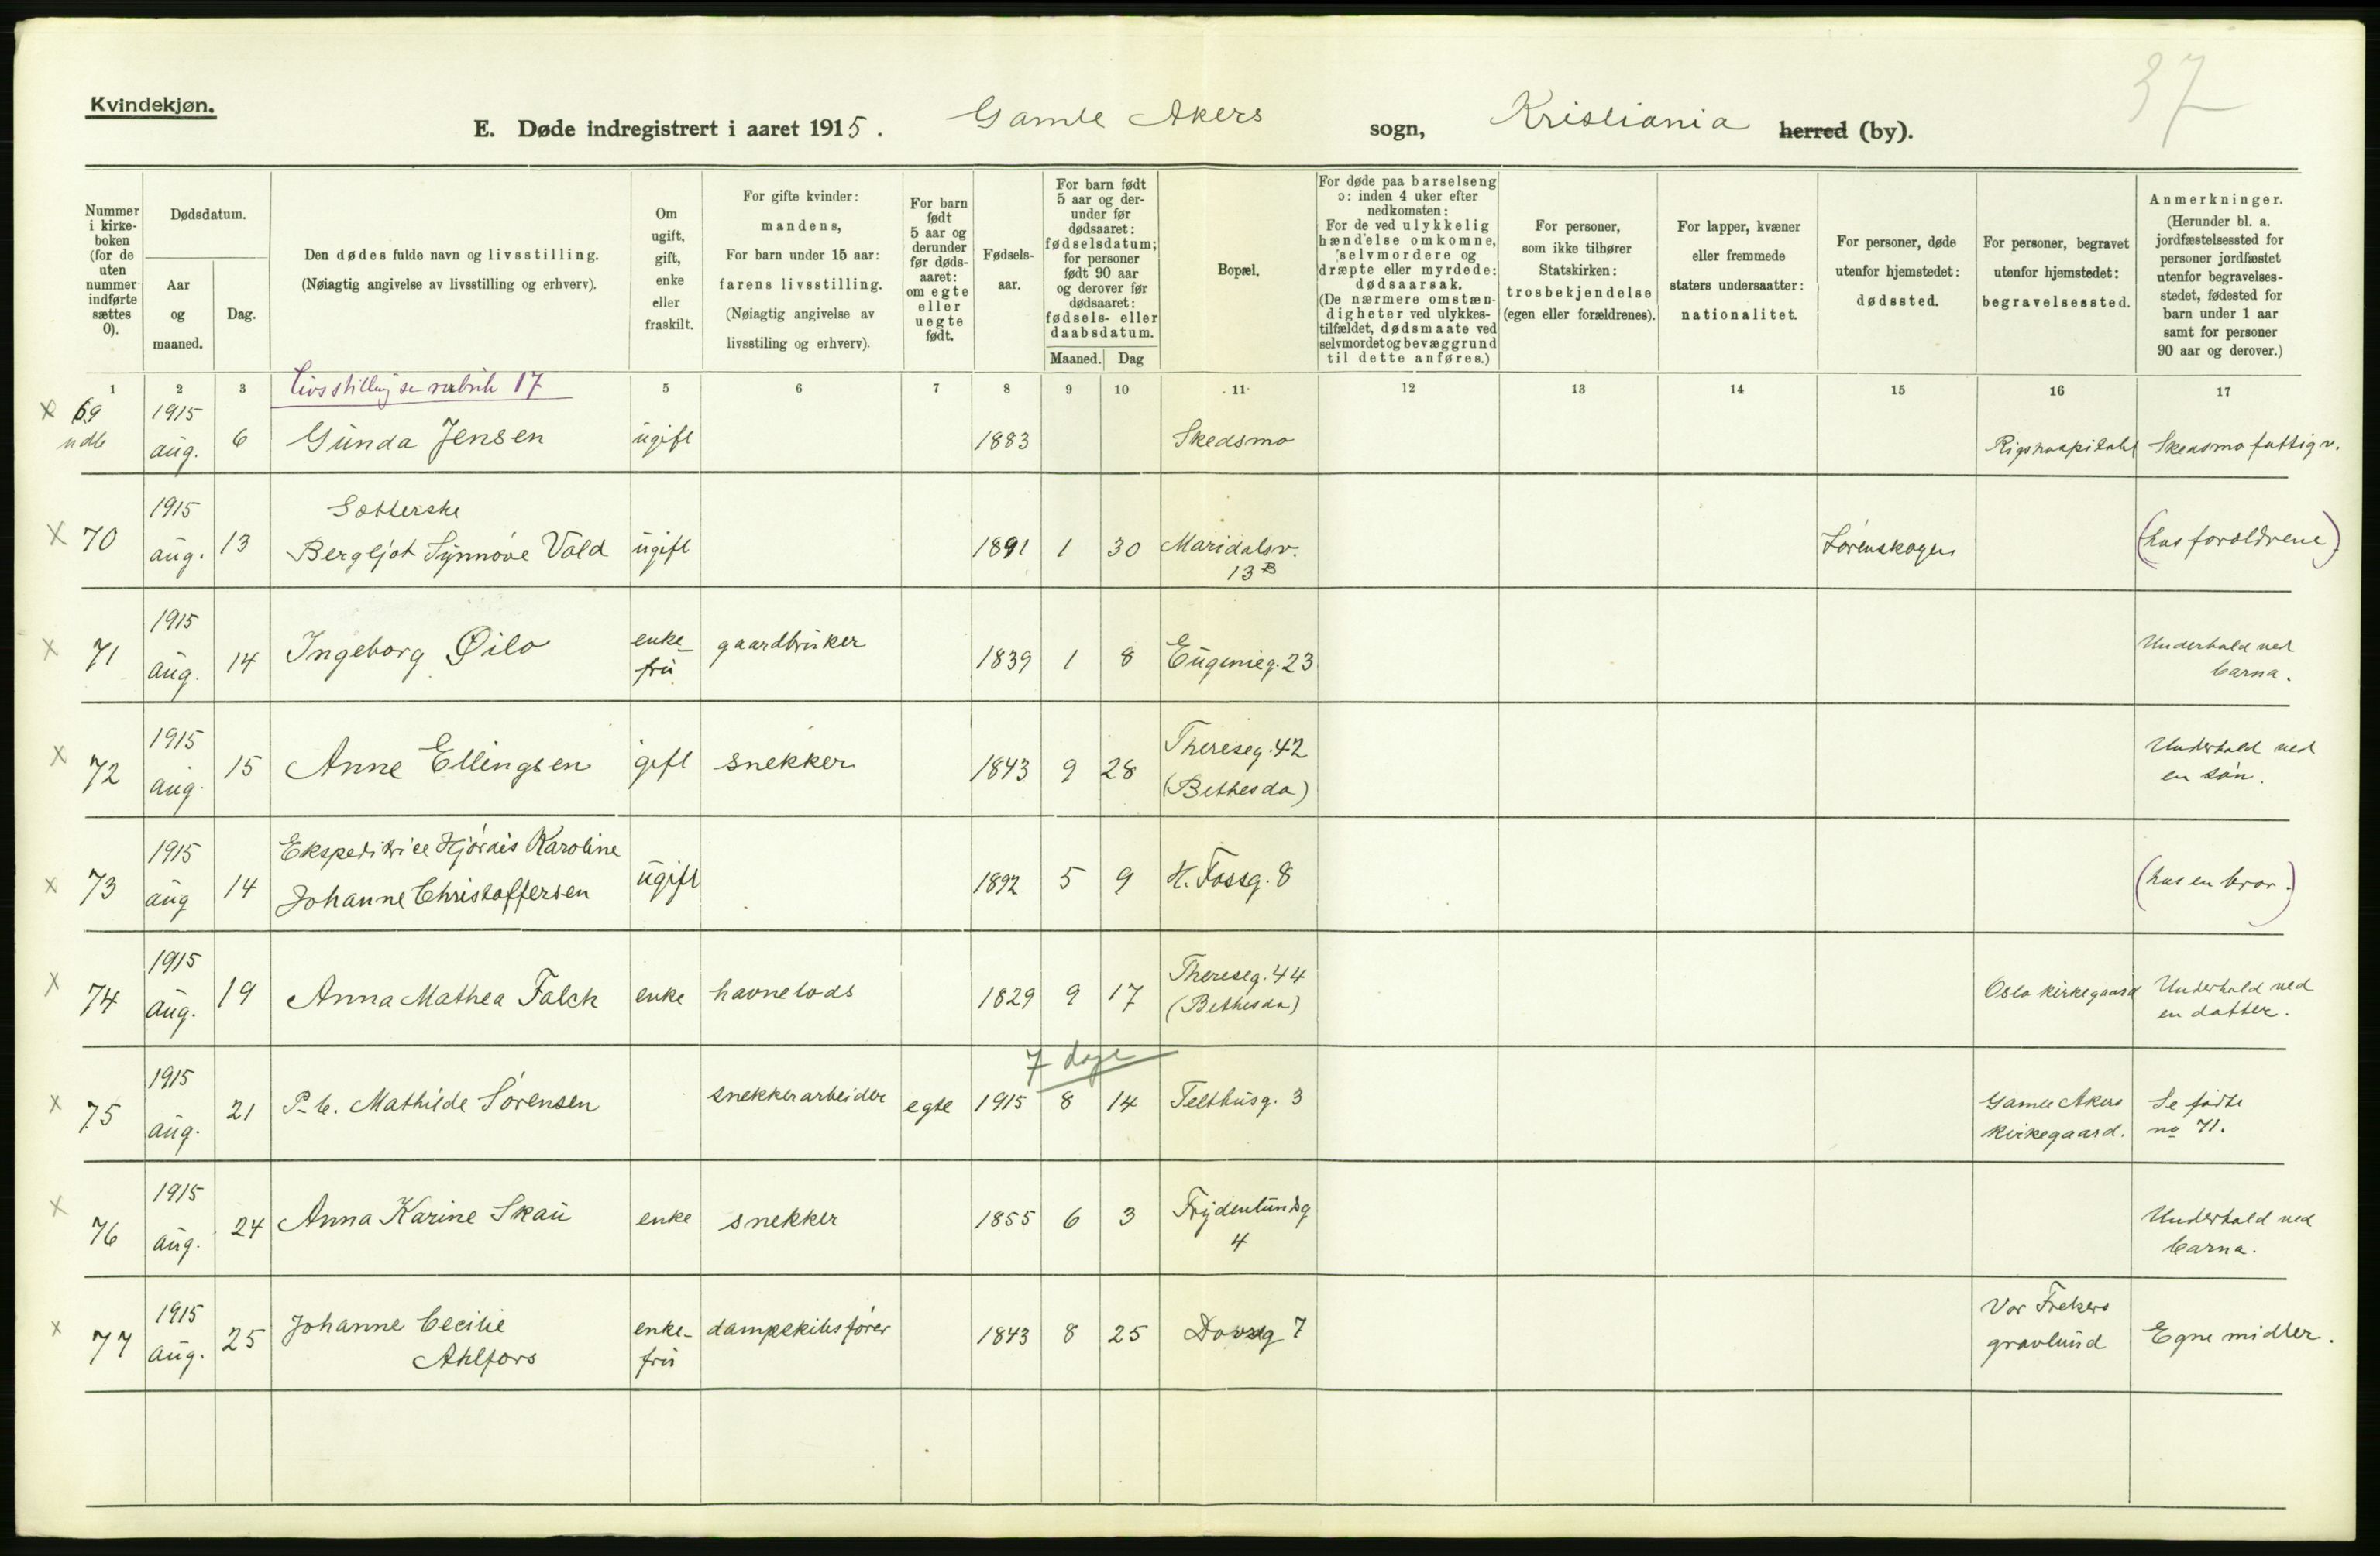 37
Kvindekjøn.
E. Døde indregistrert i aaret 1915. Gamle Akers sogn, Kristiania herred (by).
Nummer i kirkeboken (for de uten nummer indførte sættes 0).
Dødsdatum.
Aar og maaned.
Dag.
Den dødes fulde navn og livsstilling.
(Nøiagtig angivelse av livsstilling og erhverv).
Om ugift, gift, enke eller fraskilt.
For gifte kvinder: mandens,
For barn under 15 aar: farens livsstilling.
(Nøiagtig angivelse av livsstiling og erhverv).
For barn født 5 aar og derunder før dødsaaret: om egte eller uegte født.
Fødselsaar.
For barn født 5 aar og derunder før dødsaaret: fødselsdatum; for personer født 90 aar og derover før dødsaaret: fødsels- eller daabsdatum.
Maaned. Dag
Bopæl.
For døde paa barselseng ɔ: inden 4 uker efter nedkomsten:
For de ved ulykkelig hændelse omkomne, selvmordere og dræpte eller myrdede: dødsaarsak.
(De nærmere omstændigheter ved ulykkestilfældet, dødsmaate ved selvmordet og bevæggrund til dette anføres.)
For personer, som ikke tilhører Statskirken: trosbekjendelse (egen eller forældrenes).
For lapper, kvæner eller fremmede staters undersaatter: nationalitet.
For personer, døde utenfor hjemstedet: dødssted.
For personer, begravet utenfor hjemstedet: begravelsessted.
Anmerkninger.
(Herunder bl. a. jordfæstelsessted for personer jordfæstet utenfor begravelsesstedet, fødested for barn under 1 aar samt for personer 90 aar og derover.)
1 2 3 5 6 7 8 9 10 11 12 13 14 15 16 17
Livsstilling se rubrik 17
x 69 1915
aug. 6 Gunda Jensen ugift 1883 Skedsmo Rigshospitalet Skedsmo fattigv.
x 70 1915 Sætterske
aug. 13 Bergljot Synnøve Vold ugift 1891 1 30 Maridalsv. 13 B Sørenskogen (hos forældrene)
x 71 1915
aug. 14 Ingeborg Øilo enkefru gaardbruker 1839 1 8 Eugenieg. 23 Underhold ved barna.
x 72 1915
aug. 15 Anne Ellingsen gift snekker 1843 9 28 Thereseg. 42 (Bethesda) Underhold ved en søn.
x 73 1915 Ekspeditrice Hjørdis Karoline
aug 14 Johanne Christoffersen ugift 1892 5 9 H. Fossg. 8 (hos en bror.)
x 74 1915
aug. 19 Anna Mathea Falck enke havnelods 1829 9 17 Thereseg. 44 (Bethesda) Oslo kirkegaard Underhold ved en datter.
7 dage
x 75 1915
aug. 21 P-b. Mathilde Sørensen snekkerarbeider egte 1915 8 14 Telthusg. 3 Gamle Akers kirkegaard. Se fødte no 71.
x 76 1915
aug. 24 Anna Karine Skau enke snekker 1855 6 3 Frydenlundsg 4 Underhold ved barna.
x 77 1915
aug. 25 Johanne Cecilie Ahlfors enkefru dampskibsfører 1843 8 25 Dovreg 7 Vor Frelsers gravlund Egne midler.